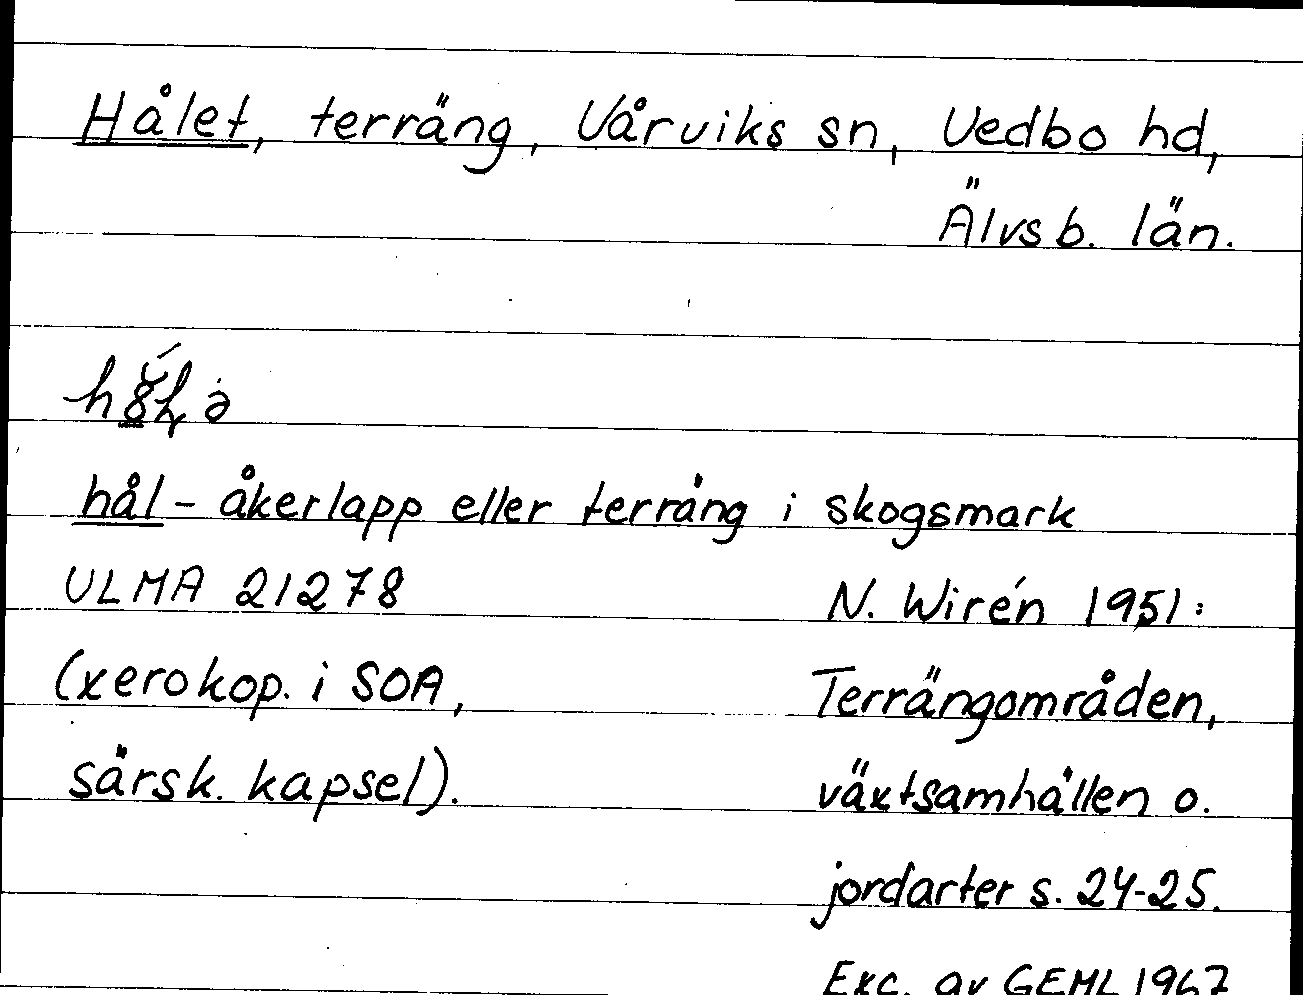 Hålet, terräng, Vårviks sn, Vedbo hd,
Älvsb. län.
hål - åkerlapp eller terräng i skogsmark
ULMA 21278
N. Wirén 1951:
(xerokop. i SOA,
Terrängområden,
särsk. kapsel).
växtsamhällen o.
jordarter s. 24-25.
Exc. av GEML 1967